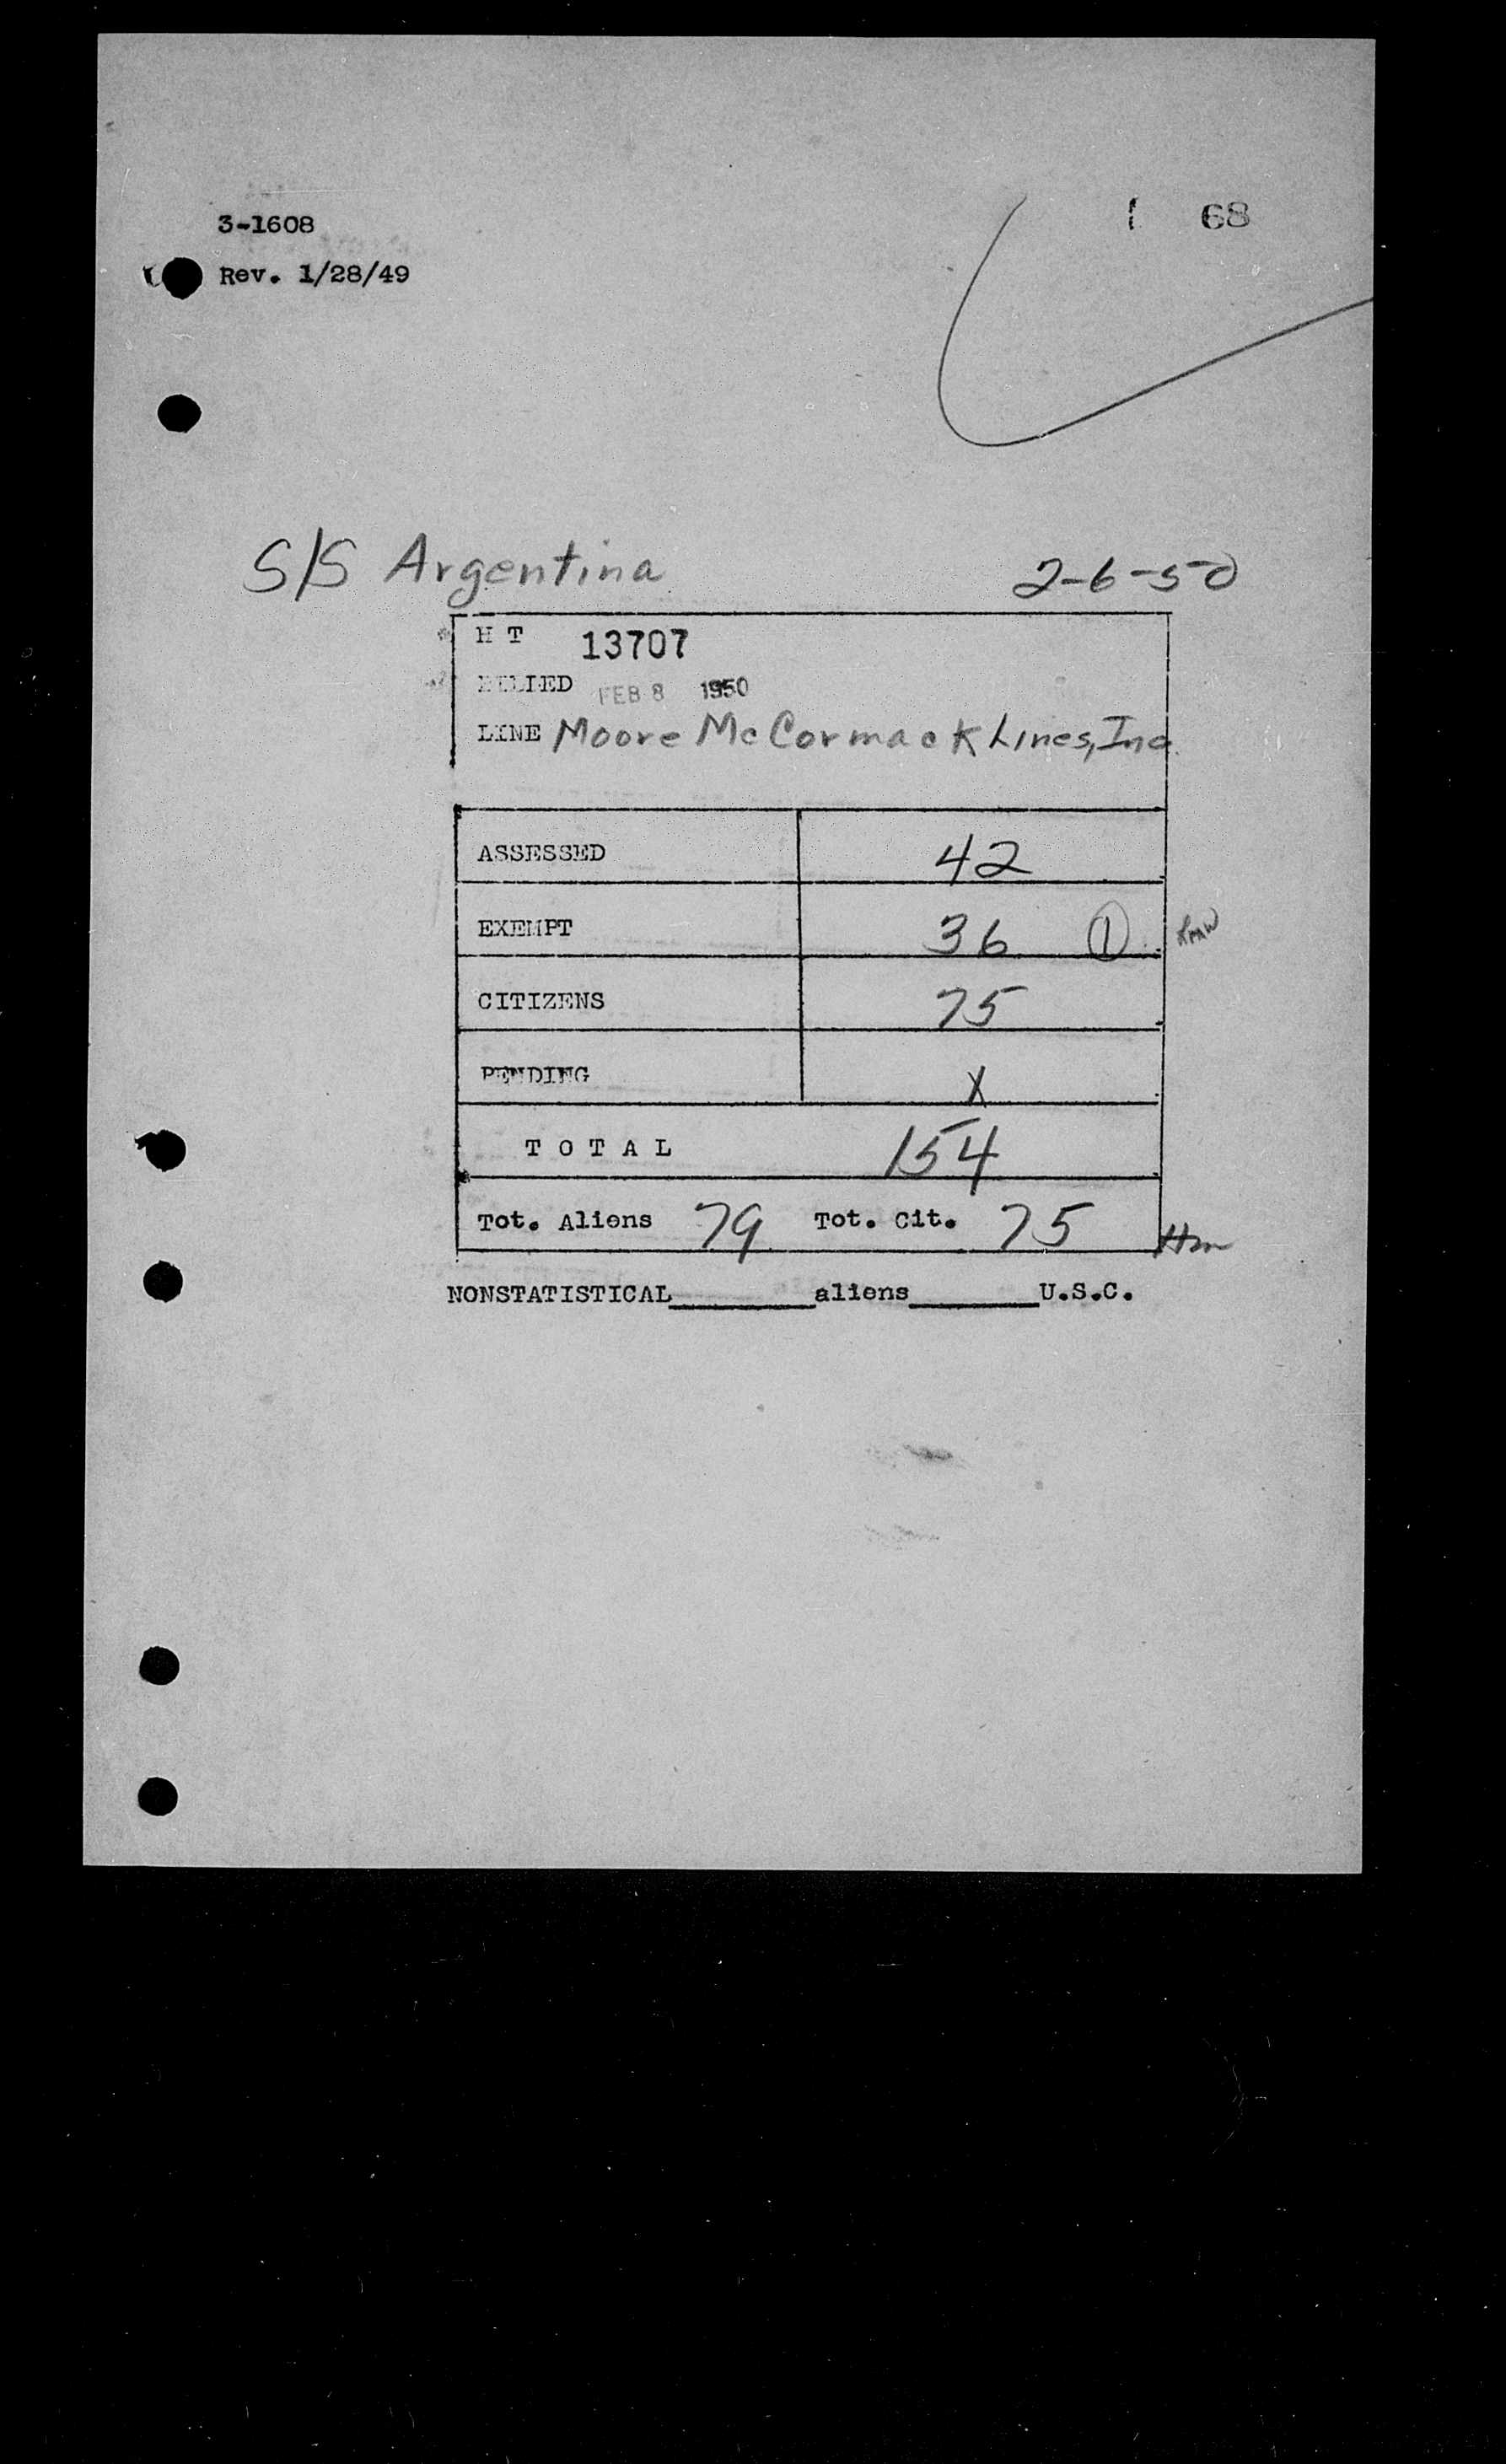 68
3-1608
Rev. 1/28/49
S/S Argentina 2-6-50
H T 13707
BILLED FEB 8 1950
LINE Moore McCormack Lines, Inc.
ASSESSED 42
EXEMPT 36 1
CITIZENS 75
PENDING X
T O T A L 154
Tot. Aliens 79 Tot. Cit. 75
NONSTATISTICAL________aliens________U.S.C.